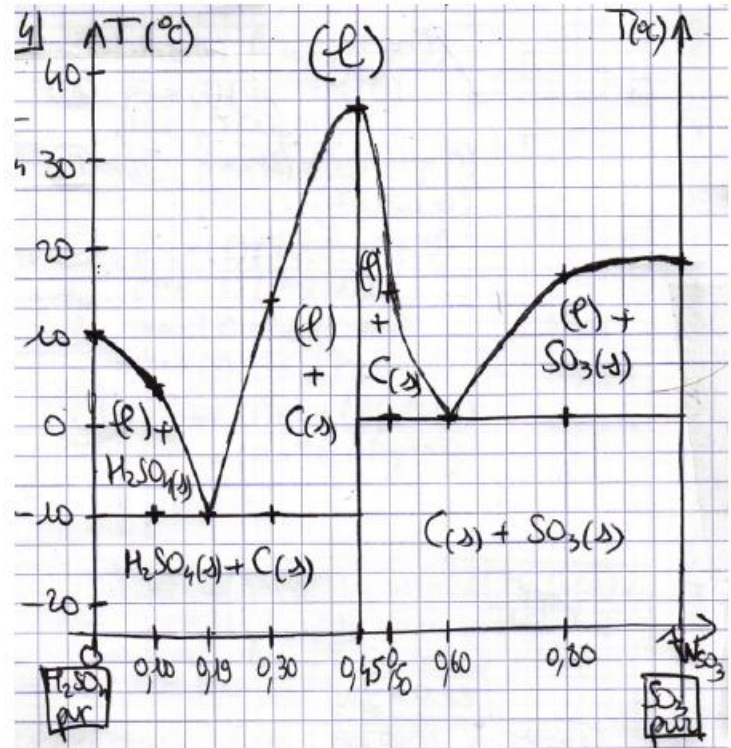 4)
T(°C)
(l)
T(°C)
40
30
20
10
0
-10
-20
(l) +
H₂SO₄(s)
(l)
+
C(s)
(l)
+
C(s)
(l) +
SO₃(s)
H₂SO₄(s) + C(s)
C(s) + SO₃(s)
0
0,10
0,19
0,30
0,45
0,50
0,60
0,80
1
wSO₃
H₂SO₄
pur
SO₃
pur